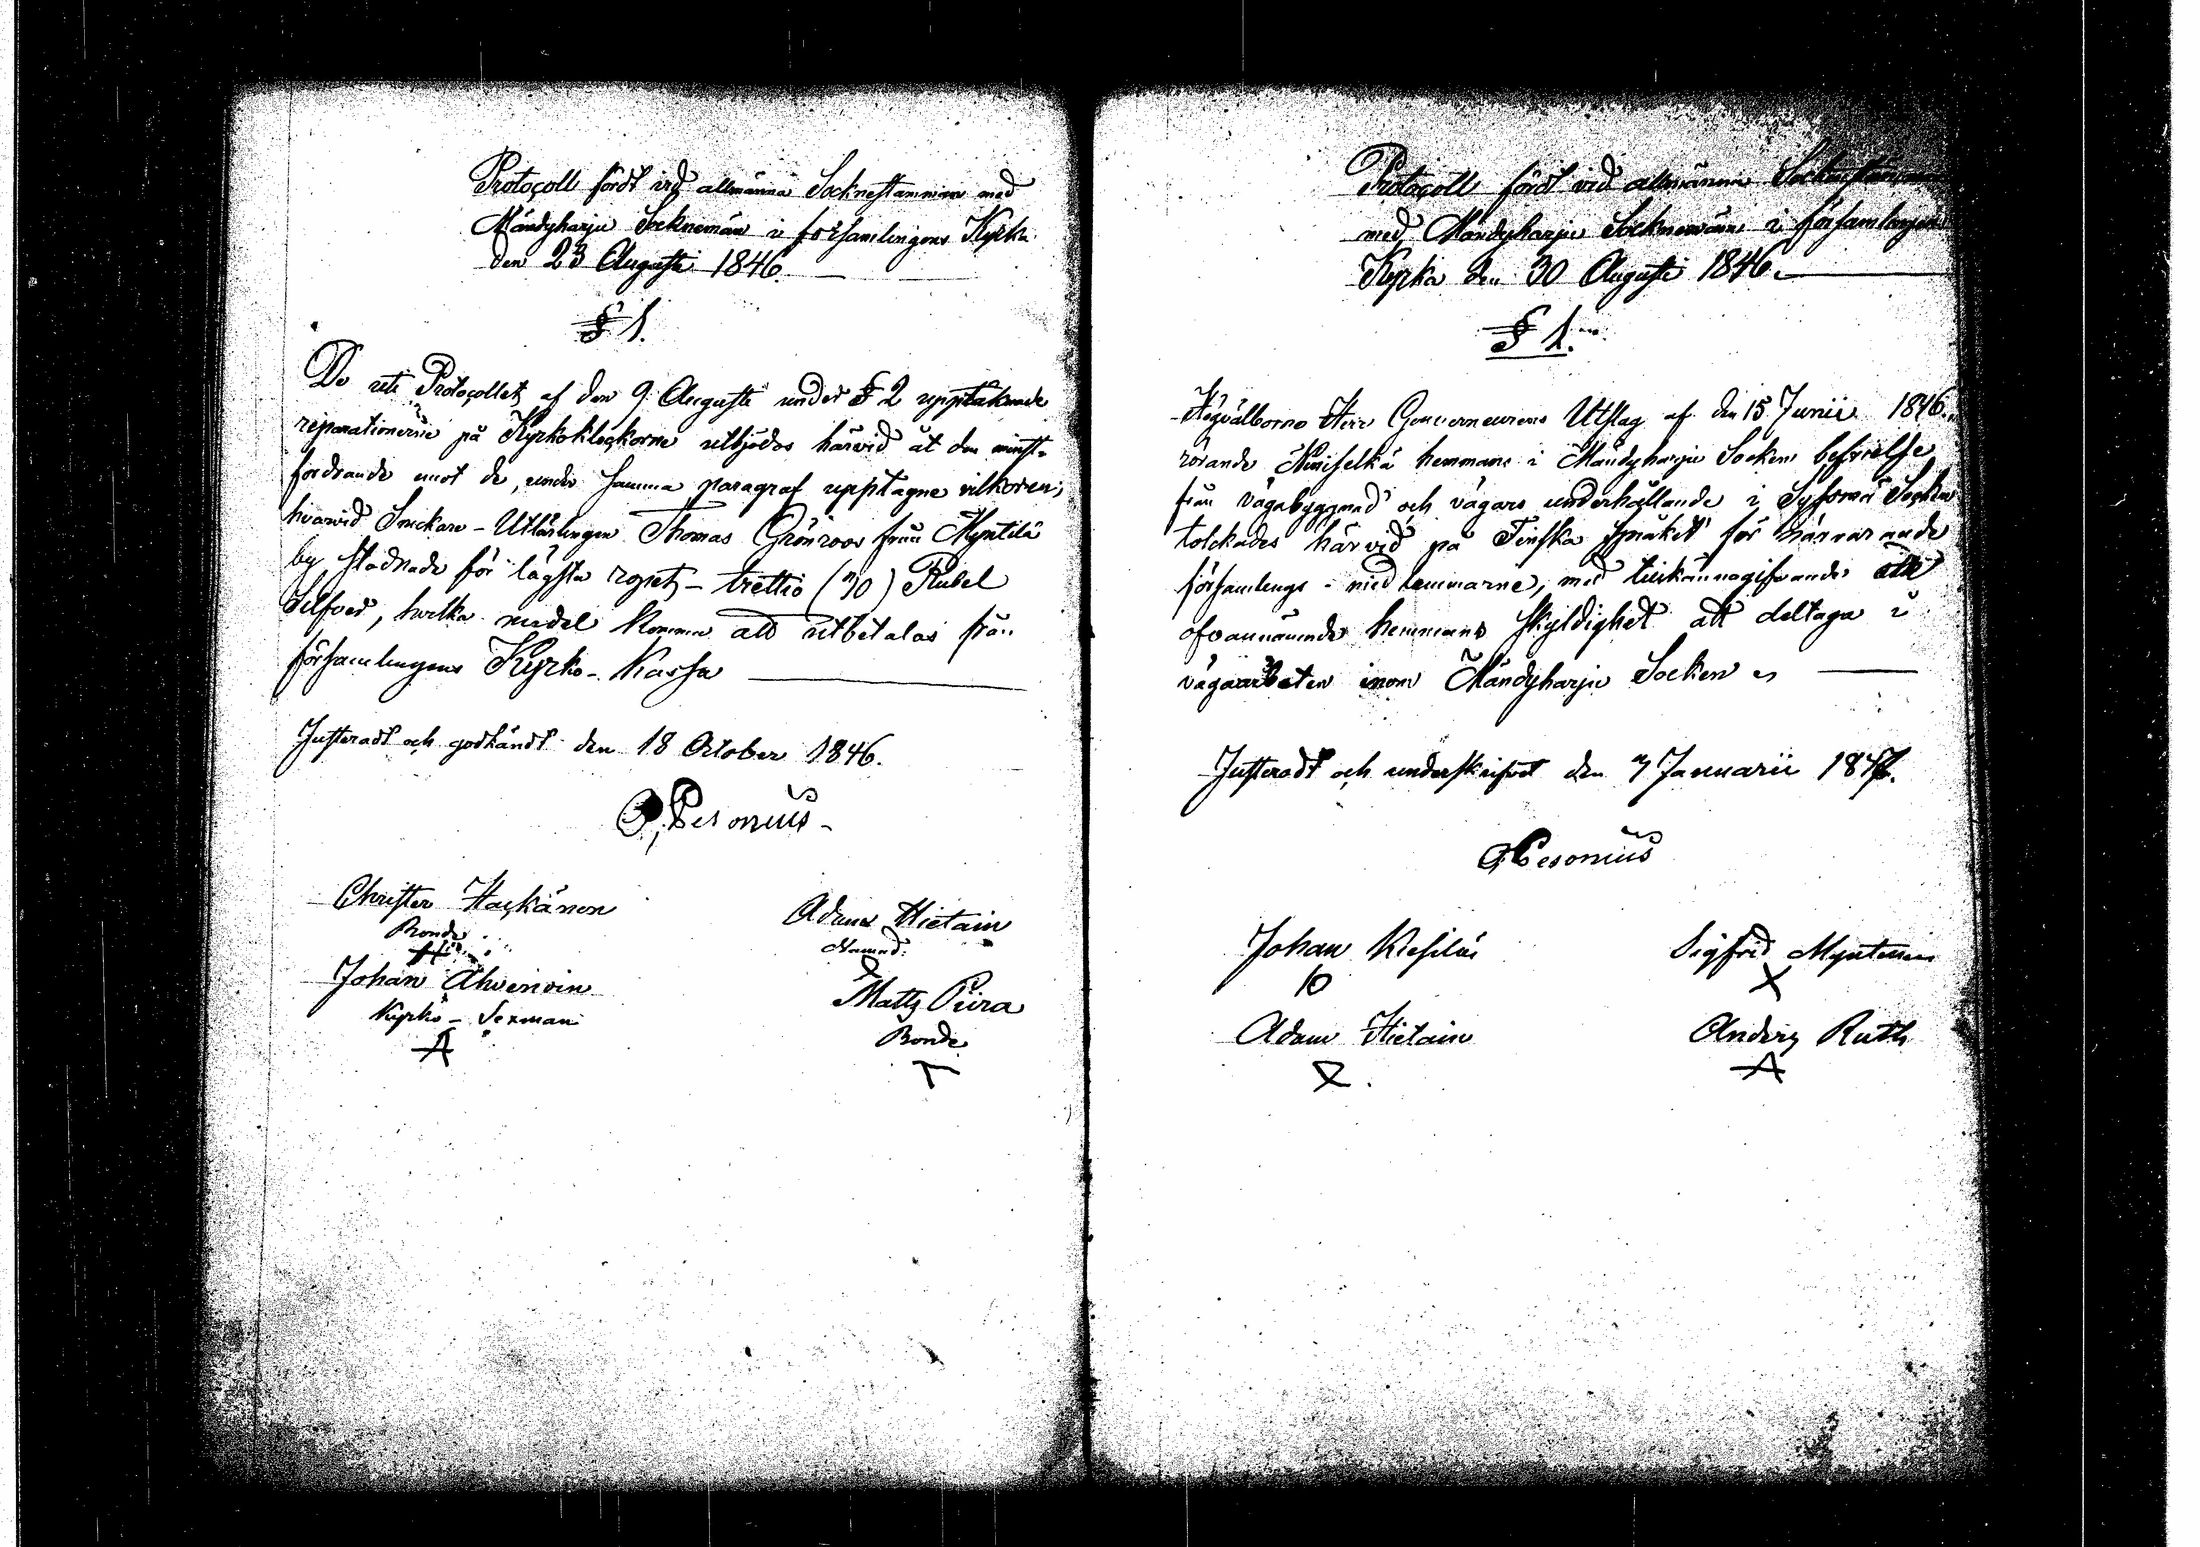 Protocoll fördt vid allmänna Sockneftamman med
Mändyharju Socknemän i församlingens Kyrka
den 23 Augusti 1846.
§ 1.
De uti Protocollet af den 9 Augusti under § 2 upptaknade
reparationerne på Kyrkoklockorne utbjödos härvid åt den minst-
fordrande emot de, under samma paragraf upptagne vilkoren;
hvarvid Smickare-Utlärlingen Thomas Grönroos från Myntilä
by stadnade för lägsta ropet, - trettio (30) Rubel
Silfver, hvilka medel komma att utbetalas från
församlingens Kyrko-Kassa
Justeradt och godkändt den 18 October 1846.
O, Pesonius
Christer Haikänen
Bonde
Adam Hietain
Nämnd.
Johan Ahvenain
Kyrko-Sexman
A
Matts Piira
Bonde
T
Protocoll fördt vid allmänna
med Mändyharju Socknemänn i församlingens
Kyrka den 30 Augusti 1846.
§ 1.
Högvälborne Herr Gouverneurens Utslag af den 15 Junii 1846
rörande Niniselkä hemmans i Mändyharju Socken befrielse
från vägabyggnad och vägars underhållande i Sysmä Socken
tolckades härvid på Finska språket för närvarande
församlings-medlemmarne, med tillkännagifvande
ofvannämnde hemmans skyldighet att deltaga i
vägaarbeten inom Mändyharju Socken
Justeradt och underskrifvet den 7 Januarii 1847.
O, Pesonius
Johan Kesilä
Sigfrid Myntinen
X
Adam Hietain
Anders Ruth
A